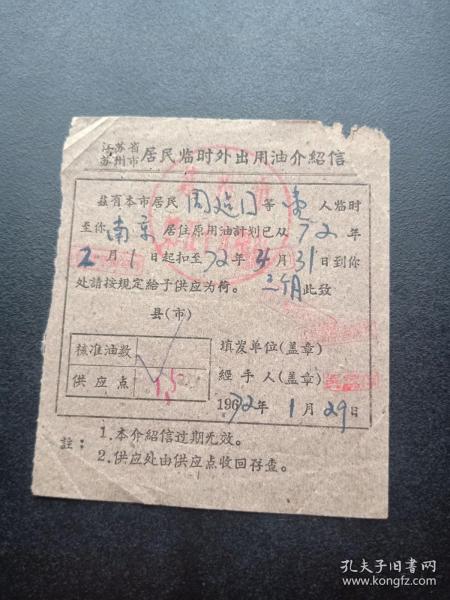 江苏省
苏州市 居民临时外出用油介紹信
茲有本市居民周 等 人临时
至你南京居住原用油計划已从72年
2月1日起扣至72年4月31日到你
处請按規定給于供应为荷。 三个月 此致
县(市)
核准油数
填发单位(盖章)
供应点 1.5
經手人(盖章)
1972年1月29日
註： 1.本介紹信过期无效。
2.供应处由供应点收回存查。
孔夫子旧书网
www.kongfz.com